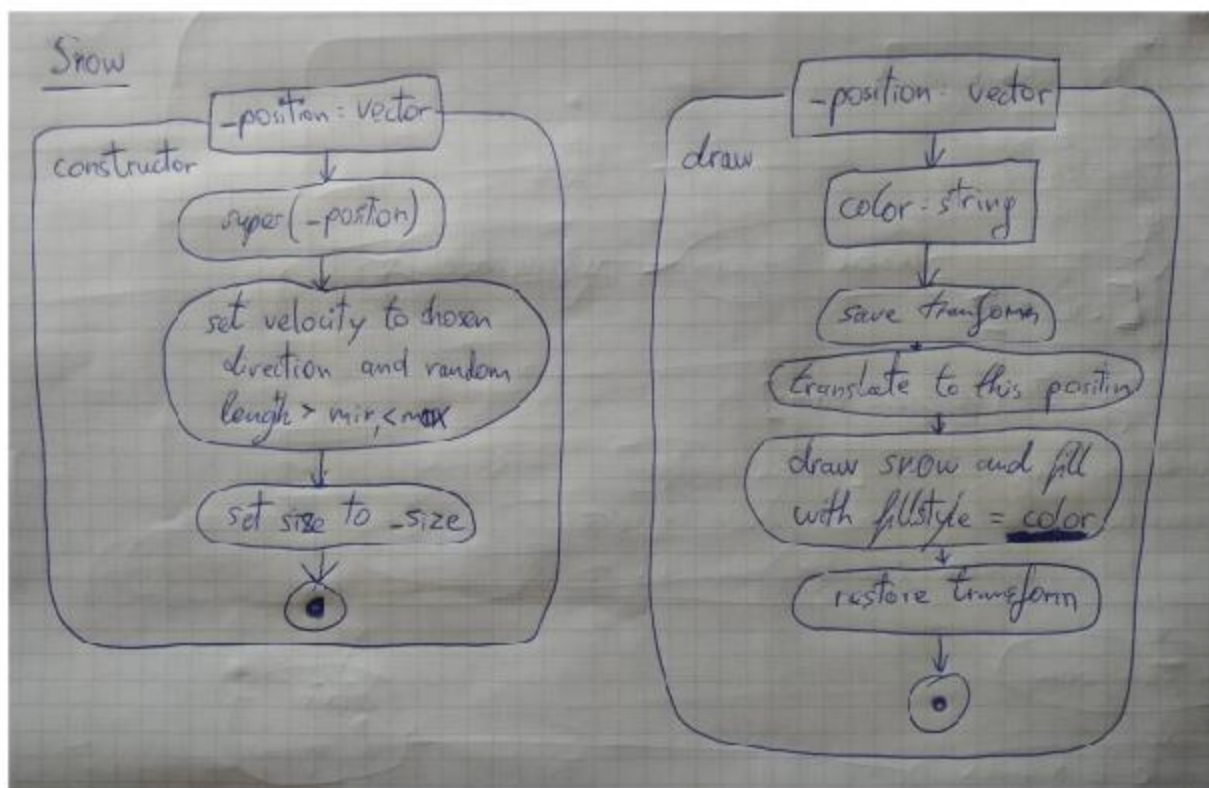 Snow
_position: vector
constructor
super(_positon)
set velocity to chosen
direction and random
length > min, < max
set size to _size
_position: vector
draw
color: string
save transform
translate to this positin
draw snow and fill
with fillstyle = color
restore transform